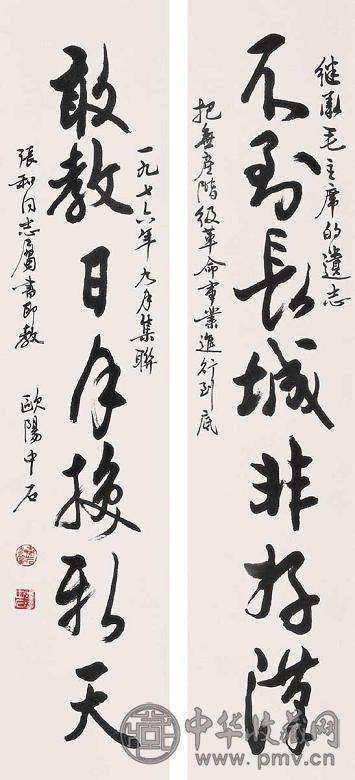 继承毛主席的遺志
不到長城非好漢
把無產階級革命事業進行到底
一九七六年九月集聯
敢教日月換新天
張和同志屬書即教
歐陽中石
中华收藏网
www.pmv.cn